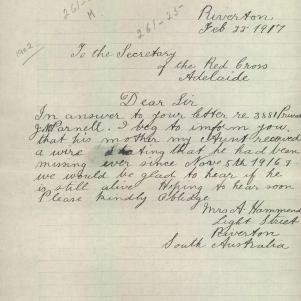 261-25
M.
261-25
1902
Riverton
Feb 22nd 1917
To the Secretary
of the Red Cross
Adelaide
Dear Sir
In answer to your letter re 3881 Private
J. Parnell. I beg to inform you,
that his mother my Aunt received
a wire stating that he had been
missing ever since Nov 5th 1916 &
we would be glad to hear if he
is still alive Hoping to hear soon
Please kindly Oblidge
Mrs A. Hammond
Light Street
Riverton
South Australia